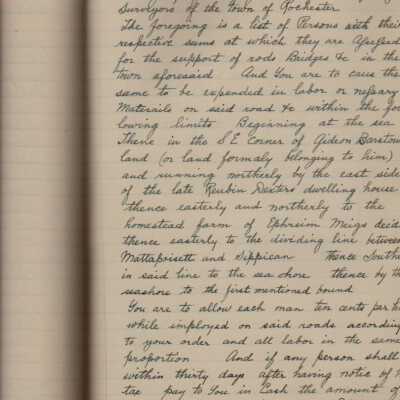 Surveyors of the Town of Rochester
The foregoing is a list of Persons with their
respective sums at which they are Assessed
for the support of rods Bridges &c in the
town aforesaid And You are to cause the
same to be expended in labor or nessary
Materails on said road &c within the fol
lowing limits Beginning at the sea
Thence in the S.E. Corner of Gideon Barstow
land (or land formaly belonging to him)
and running northerly by the east side
of the late Reubin Dexters dwelling house
thence easterly and northerly to the
homestead farm of Ephreim Meigs decid
thence easterly to the dividing line between
Mattapoisett and Sippican thence Souther
in said line to the sea shore thence by th
seashore to the first mentioned bound
You are to allow each man ten cents per
while imployed on said roads according
to your order and all labor in the same
proportion And if any person shall
within thirty days after having notice of
tax pay to You in Cash the amount of